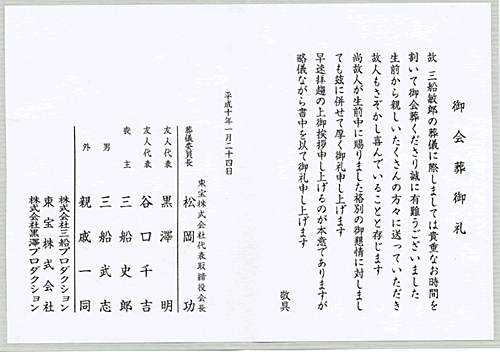 御会葬御礼
故 三船敏郎の葬儀に際しましては貴重なお時間を
割いて御会葬くださり誠に有難うございました
生前から親しいたくさんの方々に送っていただき
故人もさぞかし喜んでいることと存じます
尚故人が生前中に賜りました格別の御懇情に対しまし
ても茲に併せて厚く御礼申し上げます
早速拝趨の上御挨拶申し上げるのが本意でありますが
略儀ながら書中を以て御礼申し上げます
敬具
平成十年一月二十四日
東宝株式会社代表取締役会長
葬儀委員長 松岡功
友人代表 黒澤明
友人代表 谷口千吉
喪主 三船史郎
男 三船武志
外 親戚一同
株式会社三船プロダクション
東宝株式会社
株式会社黒澤プロダクション